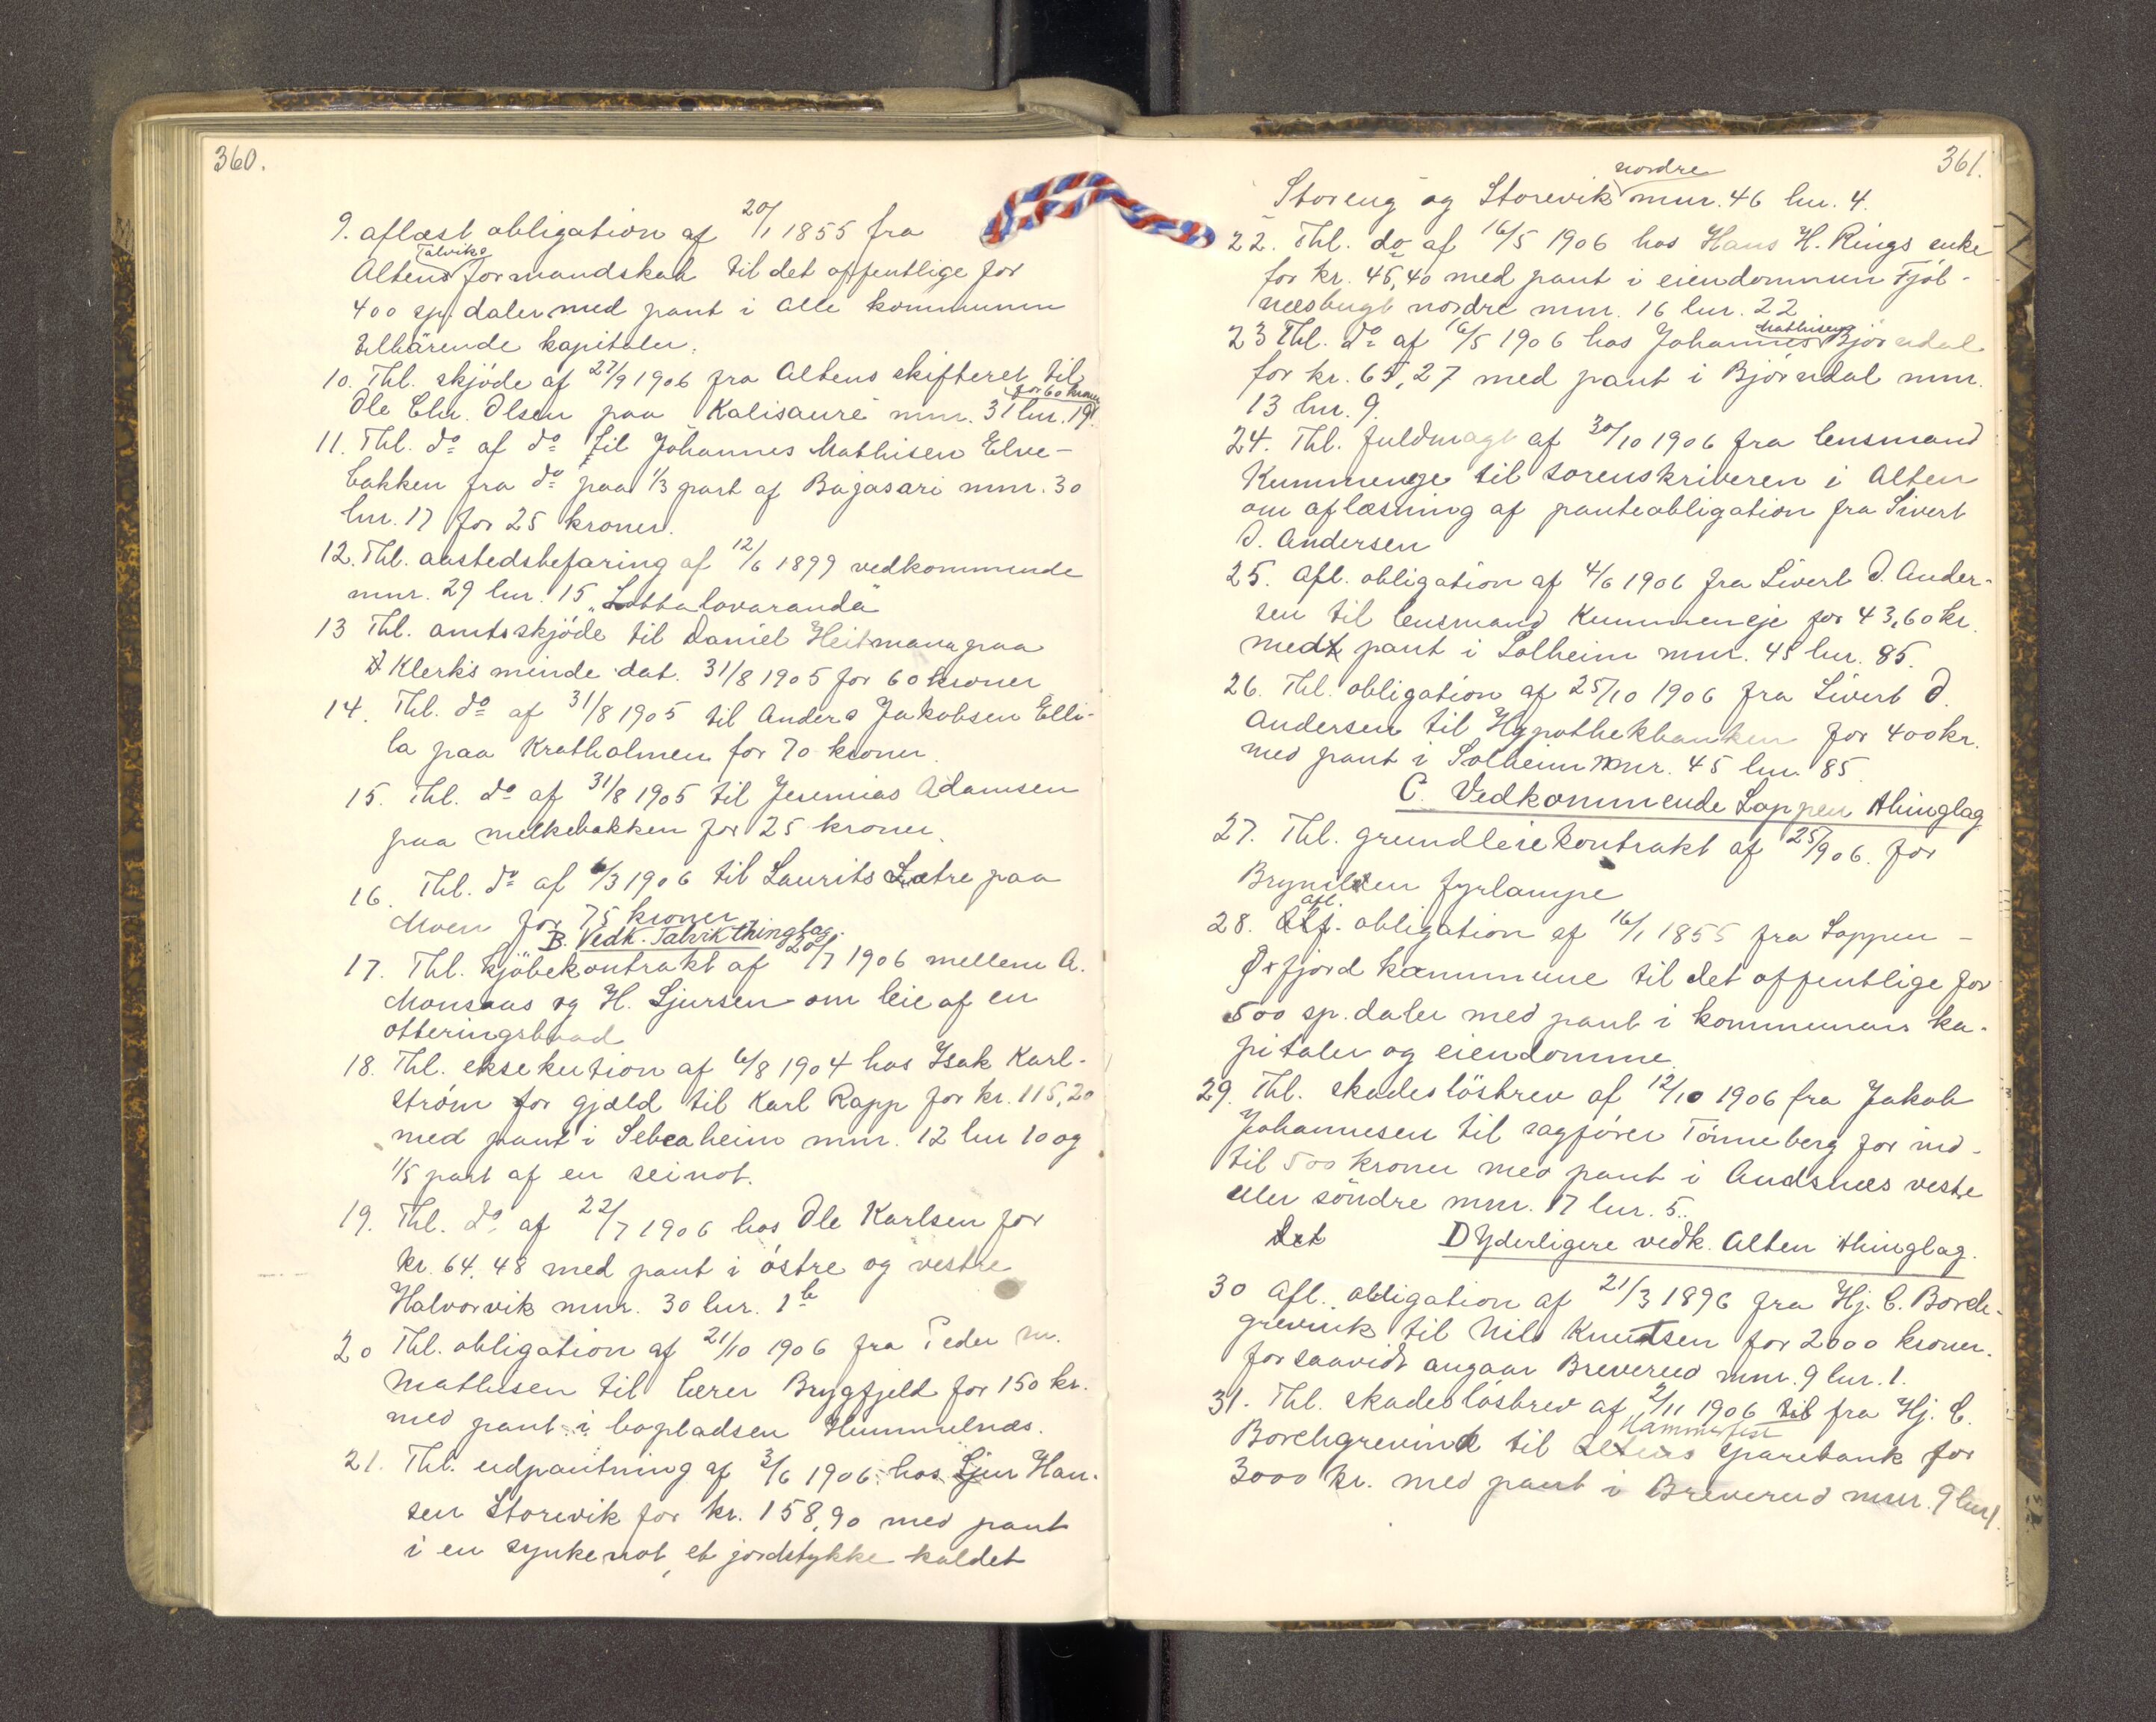 360.
9. aflæst obligation af 20/1 1855 fra
Talviks
Altens formandskab til det offentlige for
400 sp. daler med pant i alle kommunen
tilhørende kapitaler.
10. Thl. skjöde af 27/9 1906 fra Altens skifteret til
for 60 kroner
Ole Chr. Olsen paa Kalisaure mnr. 31 lnr. 19.
11. Thl. do af do til Johannes Mathisen Elve-
bakken fra do paa 1/3 part af Bajasari mnr. 30
lnr. 17 for 25 kroner.
12. Thl. aastedsbefaring af 12/6 1899 vedkommende
mnr. 29 lnr. 15 „Lattalovaranda"
13 Thl. amtsskjöde til Daniel Heitmann paa
Klerks minde dat. 31/8 1905 for 60 kroner
14. Thl. do af 31/8 1905 til Anders Jakobsen Elli-
la paa Kratholmen for 70 kroner.
15. Thl. do af 31/8 1905 til Jeremias Adamsen
paa Melkebakken for 25 kroner.
16. Thl. do af 6/3 1906 til Laurits Sætre paa
Moen for 75 kroner
B. Vedk. Talvik thinglag.
17. Thl. kjöbekontrakt af 20/7 1906 mellem A.
Monsaas og H. Sjursen om leie af en
otteringsbaad
18. Thl. eksekution af 6/8 1904 hos Isak Karl-
ström for gjæld til Karl Rapp for kr. 115,20
med pant i Sebraheim mnr. 12 lnr 10 og
1/5 part af en seinot.
19. Thl. do af 22/7 1906 hos Ole Karlsen for
kr. 64,48 med pant i östre og vestre
Halvorvik mnr. 30 lnr. 1 b
20 Thl. obligation af 21/10 1906 fra Peder M.
Mathisen til lærer Brygfjeld for 150 kr.
med pant i bopladsen Hummelnæs.
21. Thl. udpantning af 3/6 1906 hos Sjur Han-
sen Storevik for kr. 158,90 med pant
i en synkenot, et jordstykke kaldet
361.
nordre
Storeng og Storevik mnr. 46 lnr. 4.
22. Thl. do af 16/5 1906 hos Hans H. Rings enke
for kr. 45,40 med pant i eiendommen Fjöl-
næsbugt nordre mnr. 16 lnr. 22
Mathisen
23 Thl. do af 16/5 1906 hos Johannes Björndal
for kr. 65,27 med pant i Björndal mnr.
13 lnr. 9.
24. Thl. fuldmagt af 30/10 1906 fra lensmand
Kummenje til sorenskriveren i Alten
om aflæsning af panteobligation fra Sivert
O. Andersen
25. Afl. obligation af 4/6 1906 fra Sivert O. Ander-
sen til lensmand Kummeneje for 43,60 kr.
med pant i Solheim mnr. 45 lnr. 85.
26. Thl. obligation af 25/10 1906 fra Sivert O.
Andersen til Hypothekbanken for 400 kr.
med pant i Solheim mnr. 45 lnr. 85
C. Vedkommende Loppen thinglag
27. Thl. grundleiekontrakt af 25/7 906. for
Brynilen fyrlampe
afl.
28. obligation af 16/1 1855 fra Loppen -
Öxfjord kommune til det offentlige for
500 sp. daler med pant i kommunens ka-
pitaler og eiendomme.
29. Thl. skadeslösbrev af 12/10 1906 fra Jakob
Johannesen til sagförer Tönneberg for ind-
til 500 kroner med pant i Andsnæs vestre
eller söndre mnr. 17 lnr. 5.
Det D Yderligere vedk. Alten thinglag.
30 Afl. obligation af 21/3 1896 fra Hj. C. Borch-
grevink til Nils Knudtsen for 2000 kroner.
forsaavidt angaar Breverud mnr. 9 lnr. 1.
31. Thl. skadeslösbrev af 2/11 1906 til fra Hj. C.
Hammerfest
Borchgrevink til Altens sparebank for
3000 kr. med pant i Breverud mnr. 9 lnr 1.